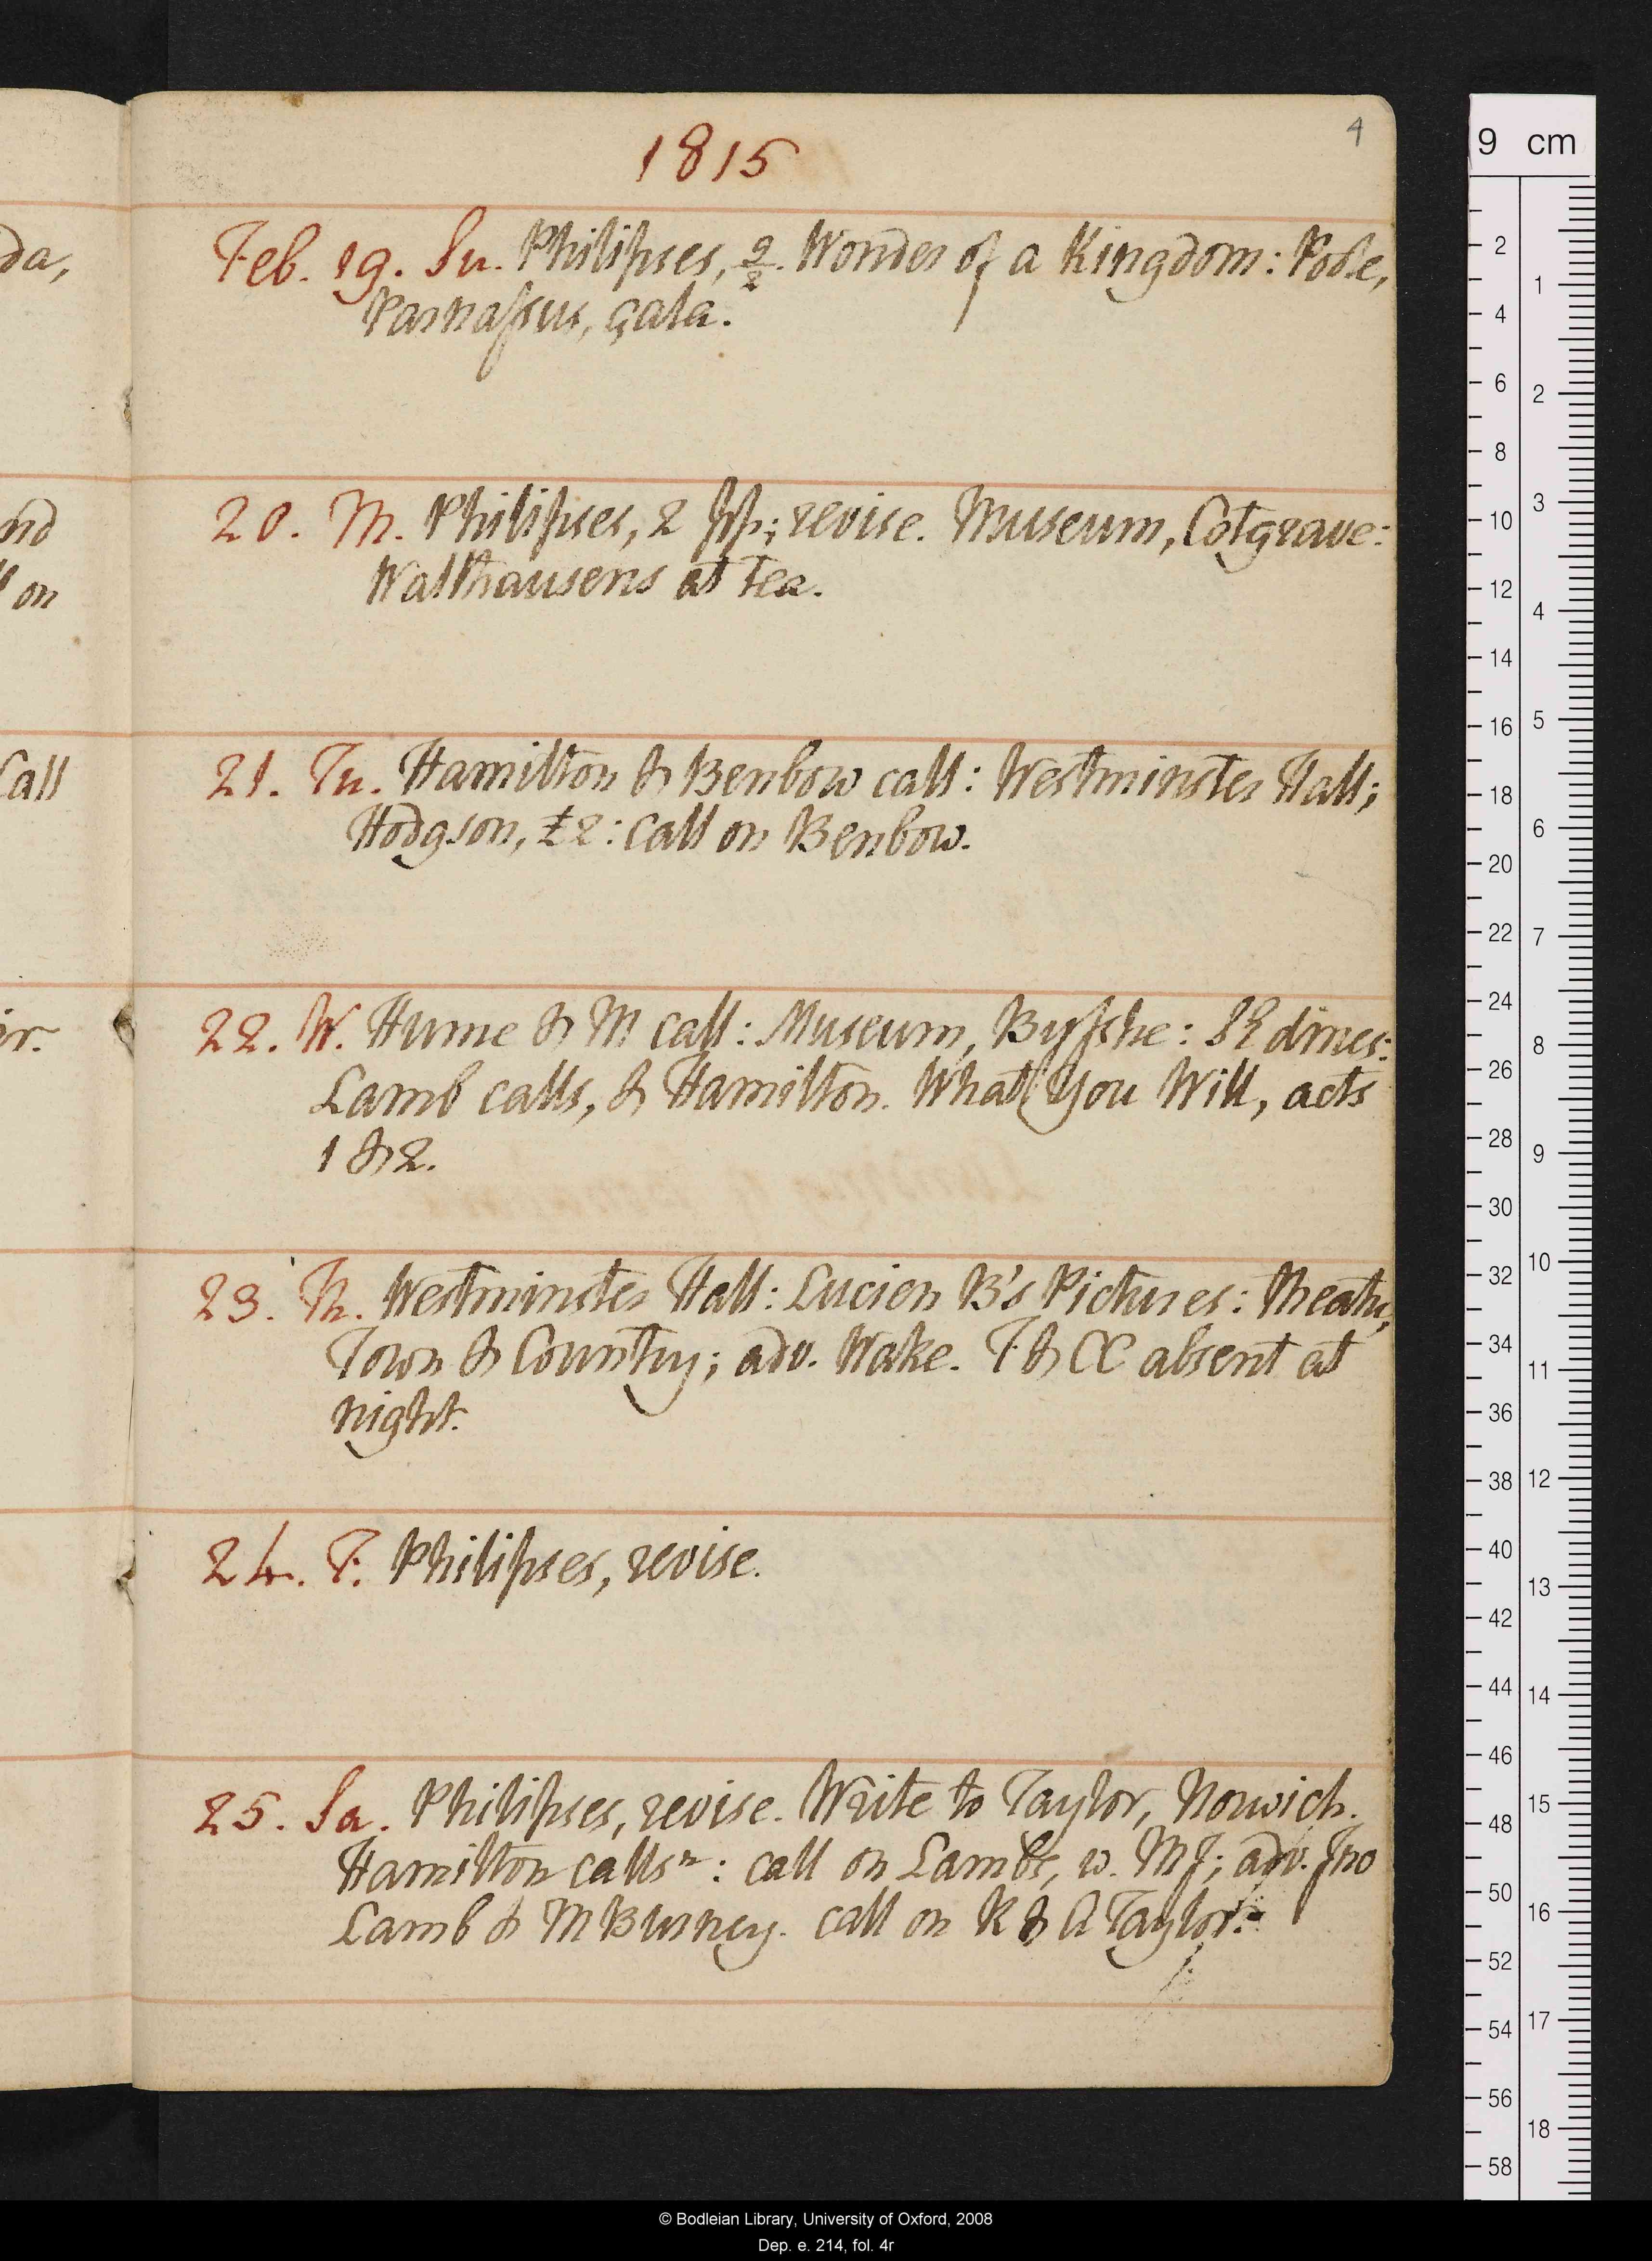 4
1815
da,
Feb. 19. Su. Philipses, 2/2. Wonder of a Kingdom: Pole,
Parnassus, çala.
nd
on
20. M. Philipses, 2 pp; revise. Museum, Cotgrave:
Walthausens at tea.
Call
21. Tu. Hamilton & Benbow call: Westminster Hall;
Hodgson, £2: call on Benbow.
ir.
22. W. Hume & M call: Museum, Bysshe: dines:
Lamb calls, & Hamilton. What You Will, acts
1 & 2.
23. Th. Westminster Hall: Lucien B's Pictures: theatre,
Town & Country; adv. Wake. F & CC absent at
night.
24. F. Philipses, revise.
25. Sa. Philipses, revise. Write to Taylor, Norwich.
Hamilton calls n: call on Lambs, w. MJ; adv. Jno
Lamb & M Burney. call on R & A Taylor.
9 cm
2
4
6
8
10
12
14
16
18
20
22
24
26
28
30
32
34
36
38
40
42
44
46
48
50
52
54
56
58
1
2
3
4
5
6
7
8
9
10
11
12
13
14
15
16
17
18
© Bodleian Library, University of Oxford, 2008
Dep. e. 214, fol. 4r